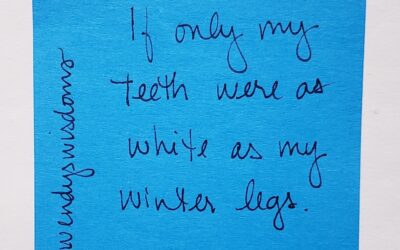 If only my
teeth were as
white as my
winter legs.
wendyswisdoms